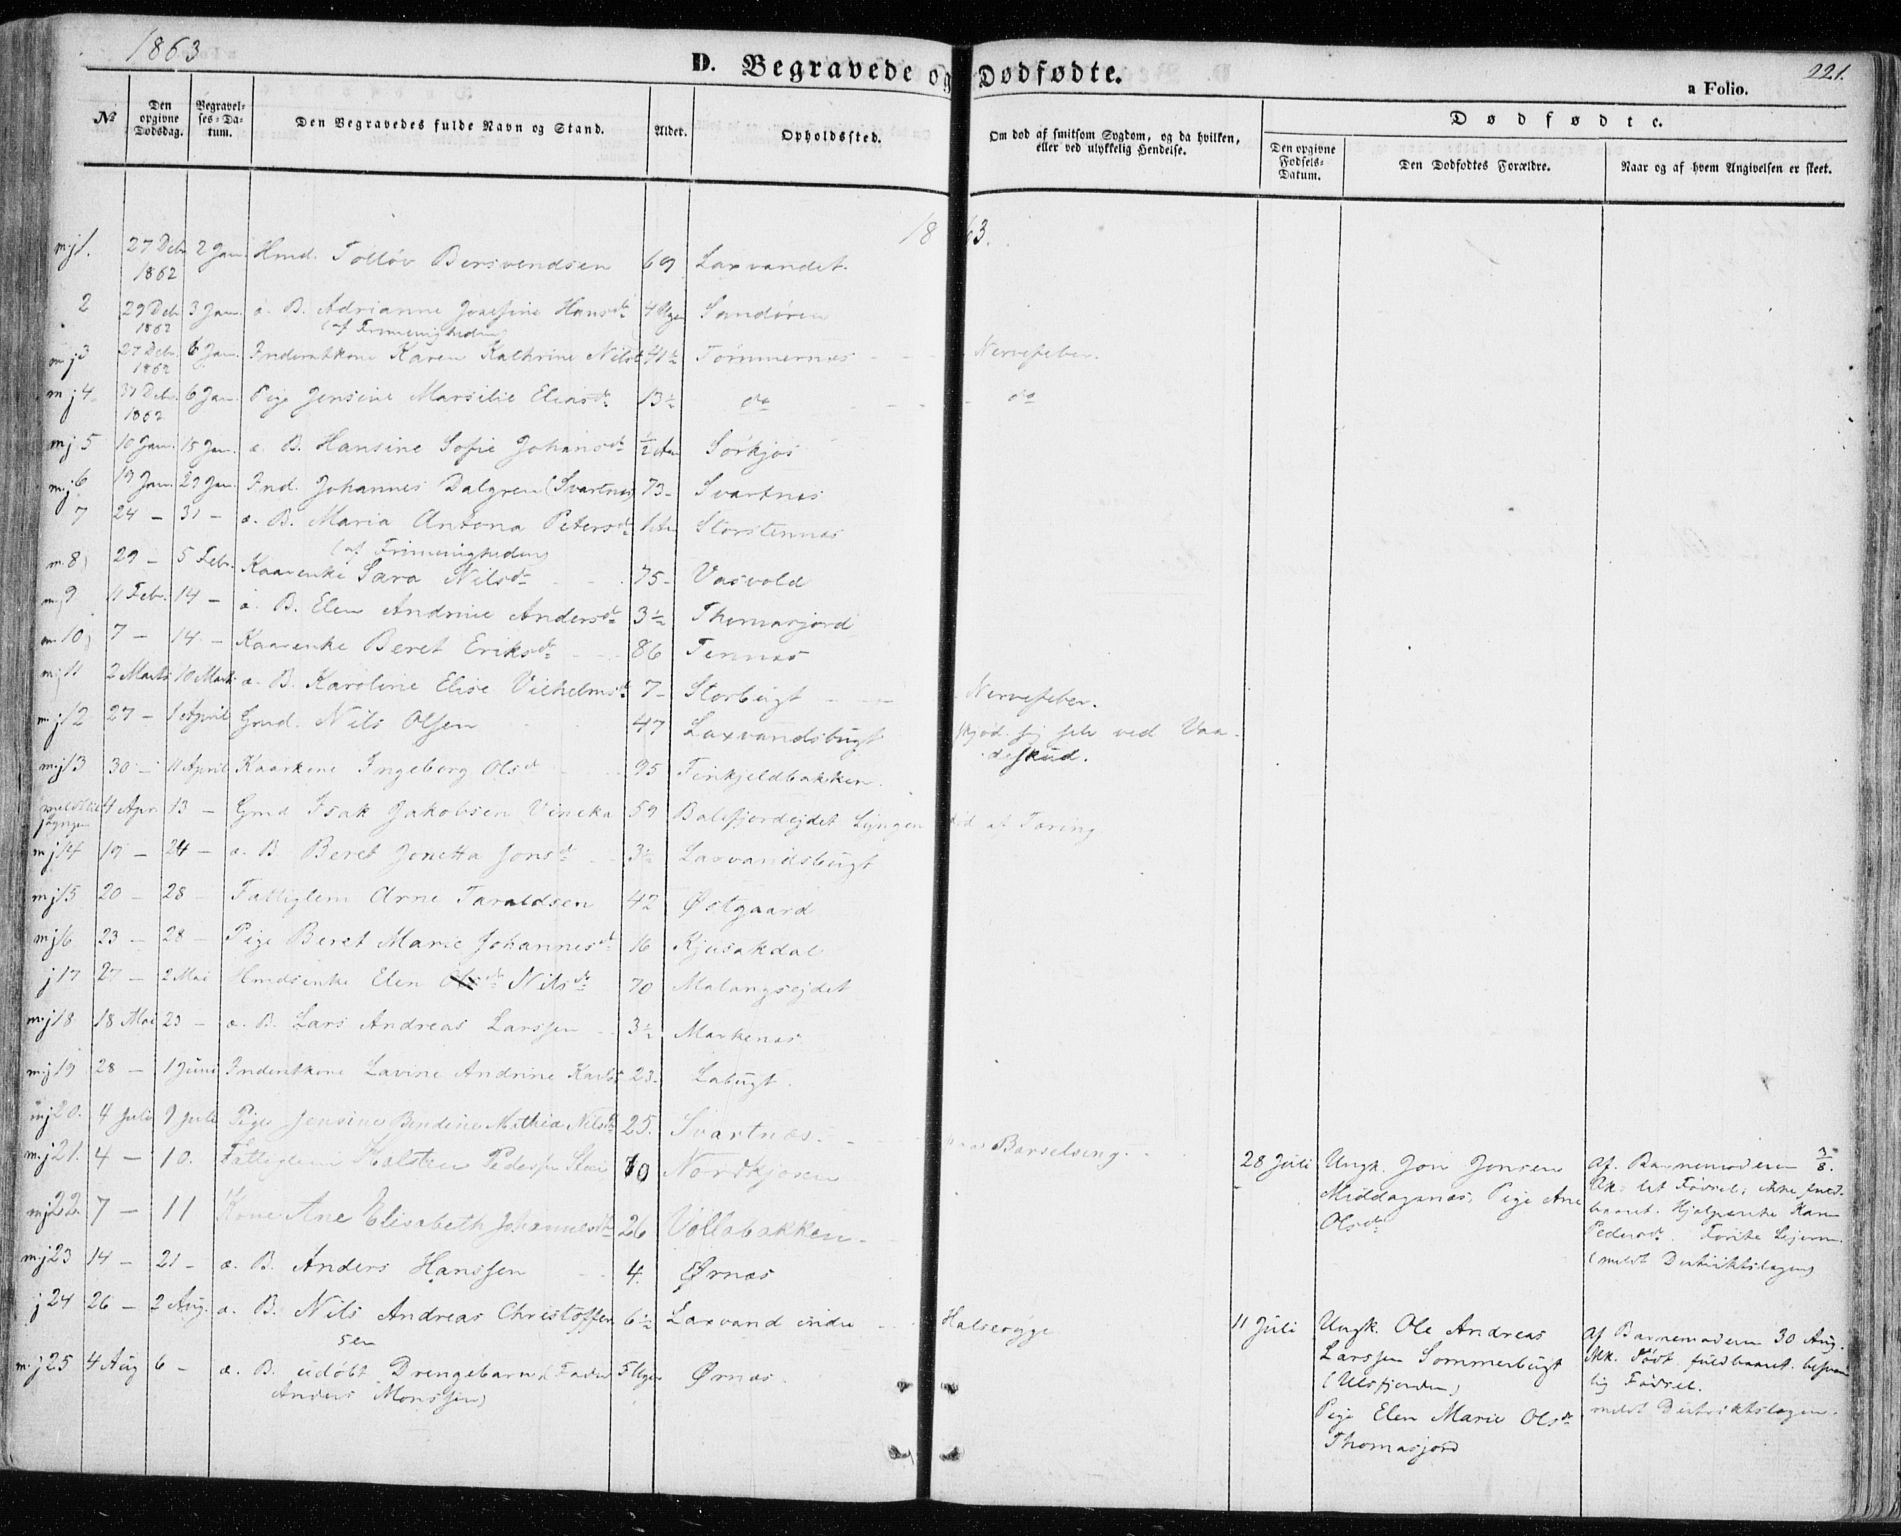 1863
D. Begravede og Dødfødte.
221.
a Folio.
No
Den opgivne Dødsdag.
Begravelses-Datum.
Den Begravedes fulde Navn og Stand.
Alder.
Opholdssted.
Om død af smitsom Sygdom, og da hvilken, eller ved ulykkelig Hendelse.
Dødfødte.
Den opgivne Fødsels-Datum.
Den Dødfødtes Forældre.
Naar og af hvem Angivelsen er skeet.
1863.
mj1. 27 Debr 1862 2 Jan. Hmd. Tolløv Bersvendsen 69 Laxvandet.
2 29 Debr 1862 3 Jan. æ. B. Adrianne Josefine Hansdtr 4 Uger Sandøren
(af Frimenigheden)
mj3 27 Debr. 1862 6 Jan. Inderstkone Karen Kathrine Nilsdtr 41½ Tømmernæs - - Nervefeber.
mj4 31 Debr. 1862 6 Jan. Pige Jensine Marsilie Eliasdtr 13½ do - - do
mj5 10 Jan. 15 Jan. æ. B. Hansine Sofie Johansdtr ½ Aar Sørkjos
mj6 19 Jan. 29 Jan. Ind. Johannes Dalgren (Svartnæs) 73- Svartnæs
7 24 - 31 - æ. B. Maria Antona Petersdtr 1 Aar Storstennæs
(af Frimenigheden)
m8) 29 - 5 Febr. Kaarenke Sara Nilsdtr 75- Vasvold
mj9 11 Febr. 14 - æ. B. Elen Andrine Andersdtr 3½ Thomasjord
m10) 7 - 14 - Kaarenke Beret Eriksdtr 86 Tennæs
mj11 2 Marts 10 Marts æ. B. Karoline Elise Vilhelmsdtr 7- Storbugt - - Nervefeber.
mj12 27 - 1 April Gmd. Nils Olsen 47 Laxvandsbugt skjød sig selv ved Vaa-
deskud.
mj13 30 - 11 April Kaarkone Ingeborg Olsdtr 95 Finkjeldbakken.
4 Apr. 13 - Gmd Isak Jakobsen Vineka 59 Balsfjordejdet Lyngen død af Tæring
mj14 19 - 24 - æ. B Beret Jonetta Jonsdtr 3½ Laxvandsbugt
mj15 20 - 28 - Fattiglem Arne Taraldsen 42 Østgaard
mj16 23 - 28 - Pige Beret Marie Johannesdtr 16 Kjusakdal
j17 27 - 2 Mai Hmdsenke Elen Nilsdtr 70 Malangsejdet
mj18 18 Mai 23 - æ. B. Lars Andreas Larssen 3½ Markenæs
mj19 28 - 1 Juni Inderstkone Lavine Andrine Karls 23- Labugt.
mj20. 4 Juli 9 Juli Pige Jensine Bendine Mathea Nilsdtr 25. Svartnæs. - Barselseng.
mj21. 4 - 10. Fattiglem Holsten Pedersen 70 Nordkjosen
28 Juli Ungk. Jon Jonsen Middagsnæs, Pige Ane Olsdtr
af Barnemoderen 3/8.
mj22 7 - 11 Kone Ane Elisabeth Johannesdtr 26 Vollabakken.
Pedersdtr.
(meldt Distriktslægen)
mj23 14 - 21 - æ. B. Anders Hanssen 4. Ørnæs
j24 26 - 2 Aug. æ. B. Nils Andreas Christoffer
sen 6½ Laxvand indre - Halsesyge
11 Juli Ungk. Ole Andreas
Larssen Sommerbugt
(Ulsfjorden)
Pige Elen Marie Olsdtr
Thomasjord
af Barnemoderen 30 Aug.
født fuldbaaret.
lig Fødsel.
meldt Distriktslægen.
mj25 4 Aug 6 - æ. B. udøbt Drengebarn (Fader
Anders Monssen) 5 Uger Ørnæs.